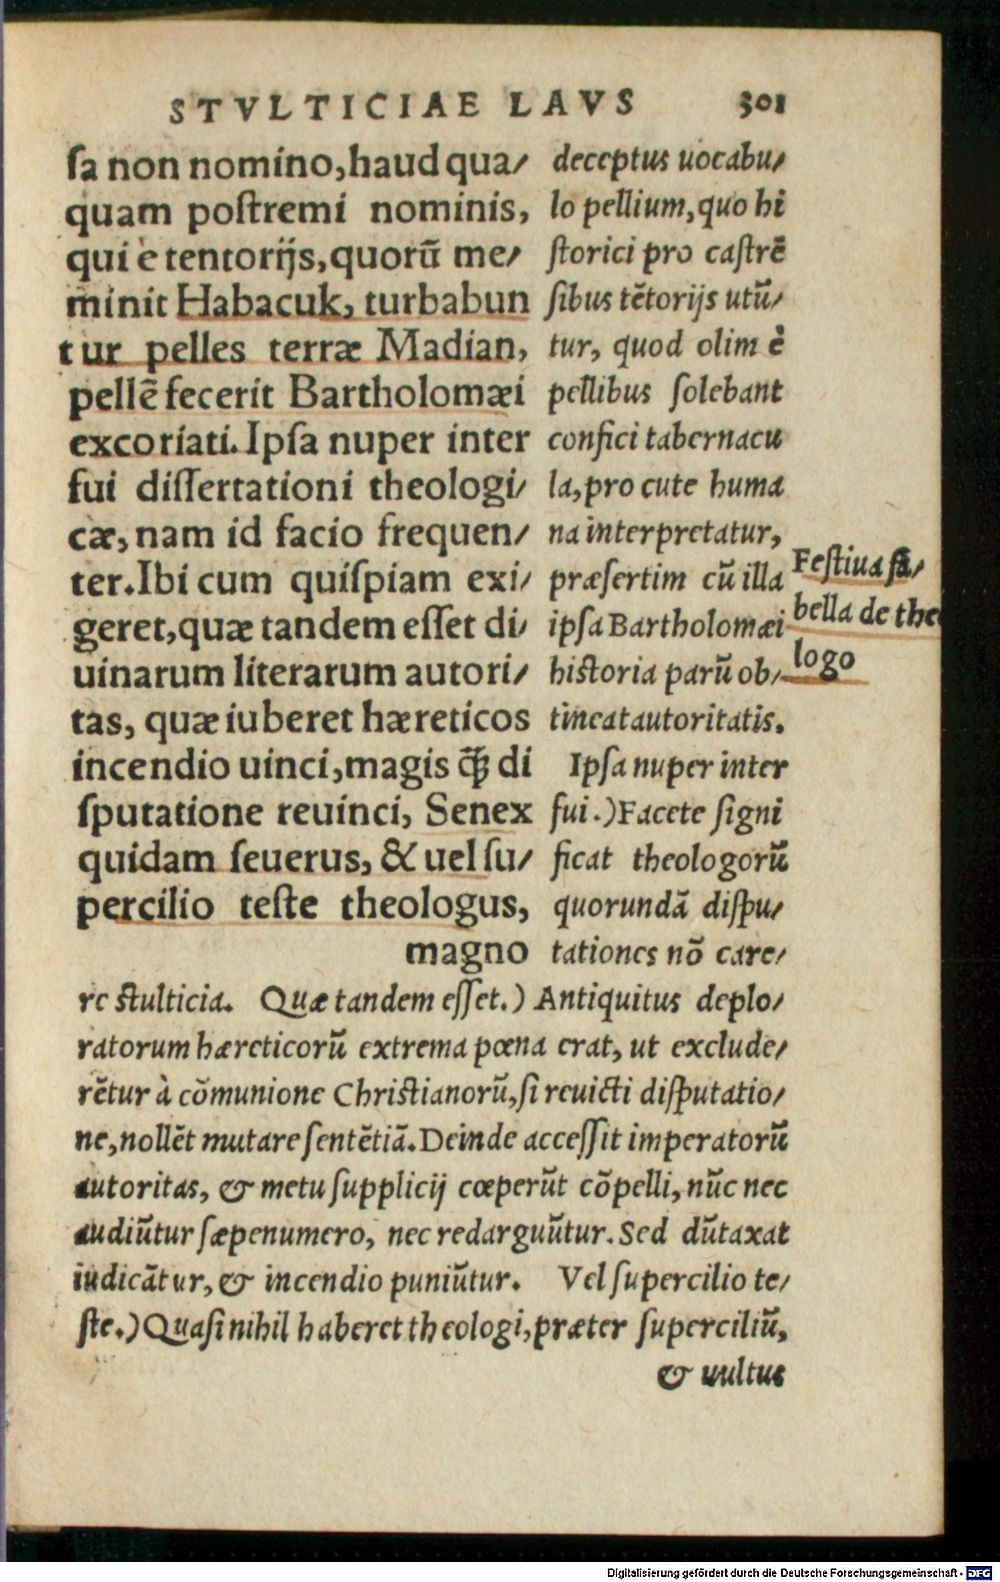 STVLTICIAE LAVS 301
sa non nomino, haud qua/
quam postremi nominis,
qui è tentorijs, quorũ me/
minit Habacuk, turbabun
tur pelles terræ Madian,
pellẽ fecerit Bartholomæi
excoriati. Ipsa nuper inter
fui dissertationi theologi/
cæ, nam id facio frequen/
ter. Ibi cum quispiam exi/
geret, quæ tandem esset di/
uinarum literarum autori/
tas, quæ iuberet hæreticos
incendio uinci, magis q̃ di
sputatione reuinci, Senex
quidam seuerus, & uel su/
percilio teste theologus,
magno
deceptus uocabu/
lo pellium, quo hi
storici pro castrẽ
sibus tẽtorijs utũ/
tur, quod olim è
pellibus solebant
confici tabernacu
la, pro cute huma
na interpretatur,
præsertim cũ illa
ipsa Bartholomæi
historia parũ ob/
tineat autoritatis.
Ipsa nuper inter
fui.) Facete signi
ficat theologorũ
quorundã dispu/
tationes nõ care/
Festiua fa/
bella de theo
logo
re stulticia. Quæ tandem esset.) Antiquitus deplo/
ratorum hæreticorũ extrema pœna erat, ut exclude/
rẽtur à cõmunione Christianorũ, si reuicti disputatio/
ne, nollẽt mutare sentẽtiã. Deinde accessit imperatorũ
autoritas, & metu supplicij cœperũt cõpelli, nũc nec
audiũtur sæpenumero, nec redarguũtur. Sed dũtaxat
iudicãtur, & incendio puniũtur. Vel supercilio te/
ste.) Quasi nihil haberet theologi, præter superciliũ,
& uultus
Digitalisierung gefördert durch die Deutsche Forschungsgemeinschaft - DFG